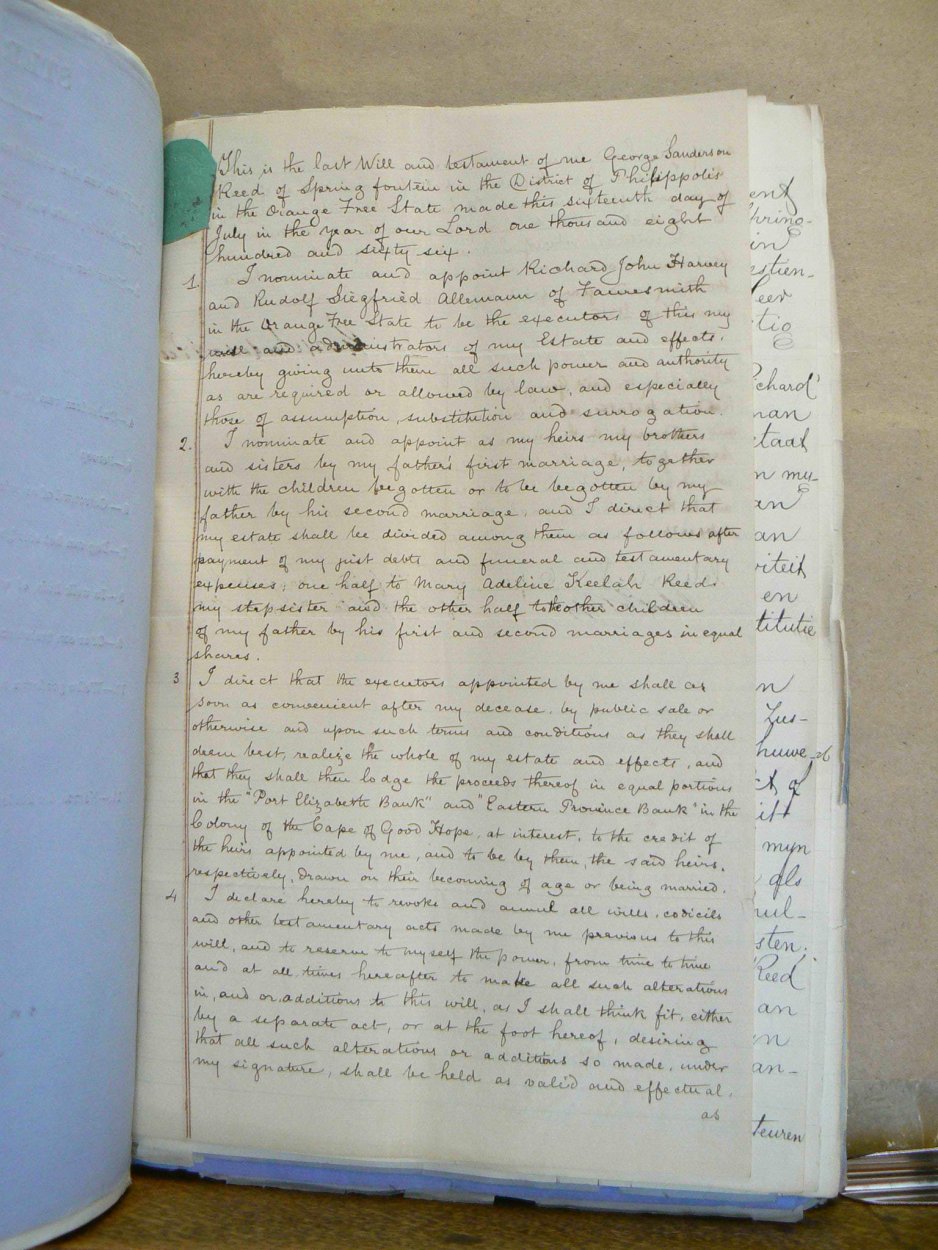 This is the last Will and testament of me George Sanderson
Reed of Spring fontein in the District of Philippolis
in the Orange Free State made this sixteenth day of
July in the year of our Lord one thousand eight
hundred and sixty six.
1. I nominate and appoint Richard John Harvey
and Rudolf Siegfried Allemann of Fauresmith
in the Orange Free State to be the executors of this my
will and administrators of my Estate and effects,
hereby giving unto them all such power and authority
as are required or allowed by law, and especially
those of assumption, substitution and surrogation.
2. I nominate and appoint as my heirs my brothers
and sisters by my father's first marriage, together
with the children begotten or to be begotten by my
father by his second marriage, and I direct that
my estate shall be divided among them as follows after
payment of my just debts and funeral and testamentary
expenses; one half to Mary Adeline Keelah Reed
my stepsister and the other half to the other children
of my father by his first and second marriages in equal
shares.
3 I direct that the executors appointed by me shall as
soon as convenient after my decease, by public sale or
otherwise and upon such terms and conditions as they shall
deem best, realize the whole of my estate and effects, and
that they shall then lodge the proceeds thereof in equal portions
in the "Port Elizabeth Bank" and "Eastern Province Bank" in the
Colony of the Cape of Good Hope, at interest, to the credit of
the heirs appointed by me, and to be by them, the said heirs,
respectively, drawn on their becoming of age or being married.
4 I declare hereby to revoke and annul all wills, codicils
and other testamentary acts made by me previous to this
will, and to reserve to myself the power, from time to time
and at all times hereafter to make all such alterations
in, and or additions to this will, as I shall think fit, either
by a separate act, or at the foot hereof, desiring
that all such alterations or additions so made, under
my signature, shall be held as valid and effectual,
as
en
titutie
mijn
als
sten.
Reed
an
teuren